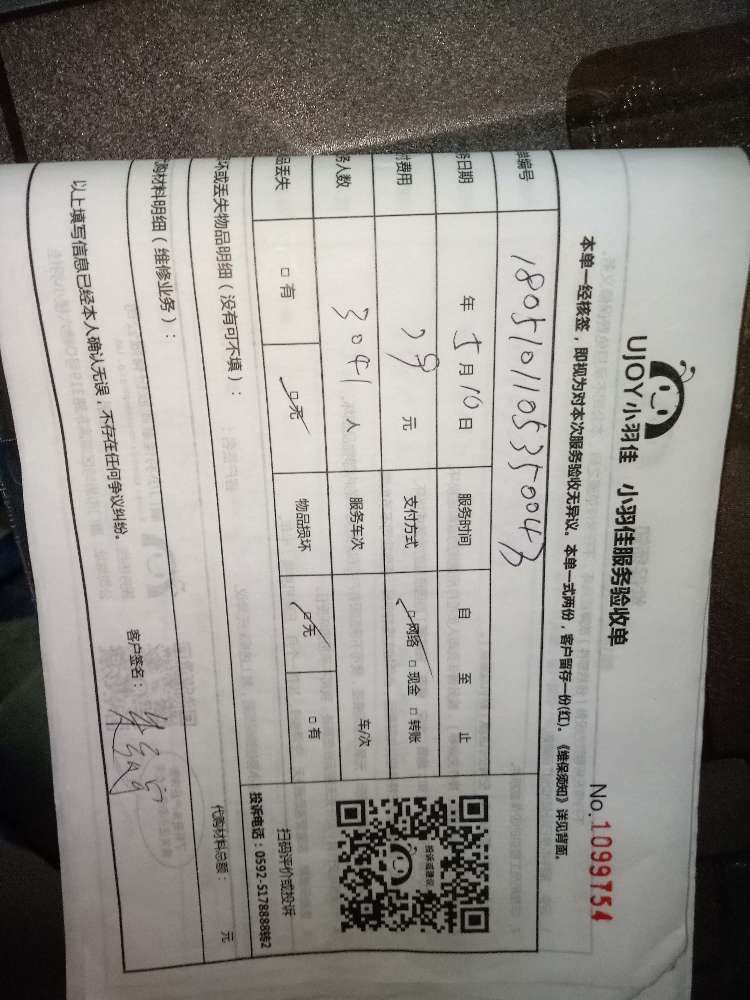 UJOY小羽佳 小羽佳服务验收单
No.1099754
本单一经核签，即视为对本次服务验收无异议。本单一式两份，客户留存一份(红)。《维保须知》详见背面。
编号 1805101105350043
日期 年 5月10日 服务时间 自 至 止
费用 元 支付方式 ☑网络 □现金 □转账
人数 3041 人 服务车次 车/次
丢失 □有 ☑无 物品损坏 ☑无 □有
扫码评价或投诉
投诉电话：0592-5178888转2
坏或丢失物品明细（没有可不填）：
购材料明细（维修业务）：
代购材料总额： 元
以上填写信息已经本人确认无误，不存在任何争议纠纷。
客户签名：